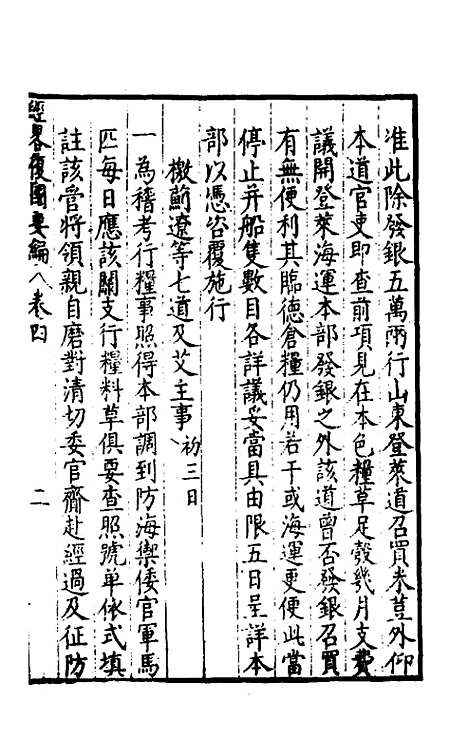 准此除發銀五萬兩行山東登萊道召買米荳外仰
本道官吏即查前項見在本色糧草足彀幾月支費
議開登萊海運本部發銀之外該道曾否發銀召買
有無便利其臨德倉糧仍用若干或海運更便此當
停止并船隻數目各詳議妥當具由限五日呈詳本
部以憑咨覆施行
檄薊遼等七道及艾主事 初三日
一為稽考行糧事照得本部調到防海禦倭官軍馬
匹每日應該關支行糧料草俱要查照號单依式填
註該管將領親自磨對清切委官齎赴經過及征防
經畧復國要編 卷四 二